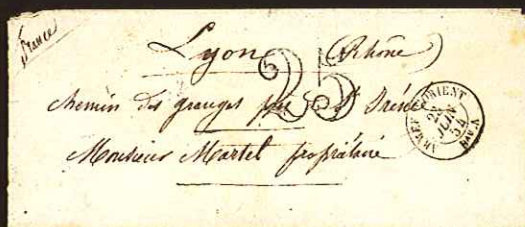 France
Lyon (Rhône)
25
chemin des granges près de St Irénée
Monsieur Martel propriétaire
ARMEE D'ORIENT
22
JUIN
54